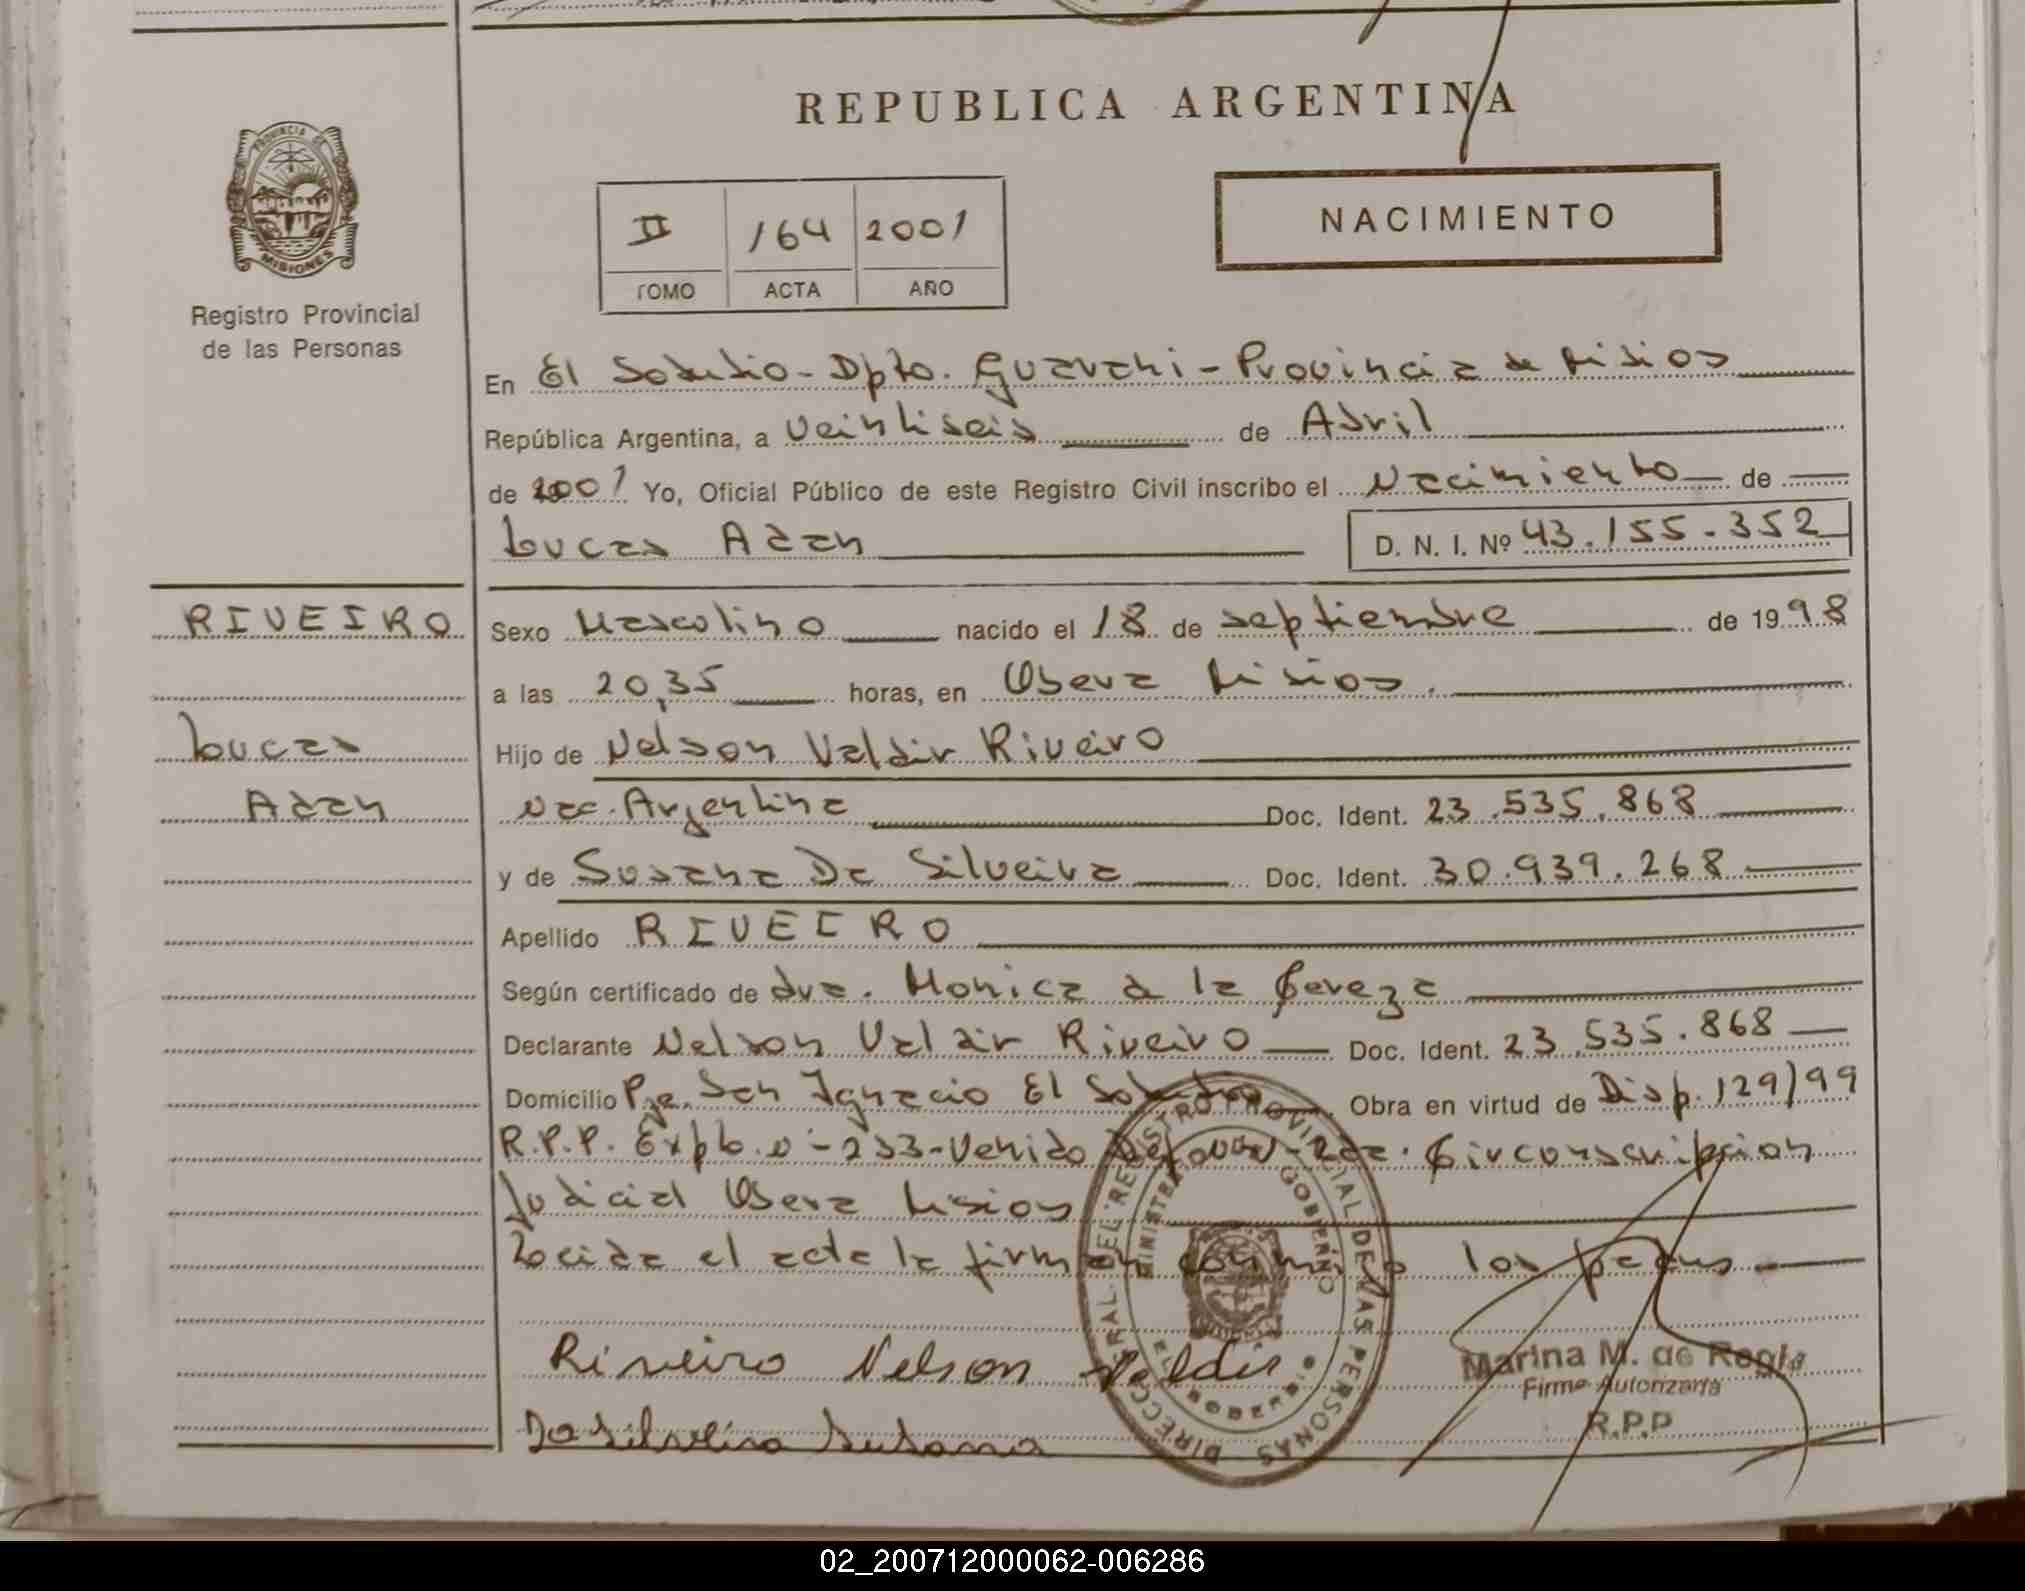 REPUBLICA ARGENTINA
PROVINCIA DE
MISIONES
Registro Provincial
de las Personas
II 164 2001
TOMO ACTA AÑO
NACIMIENTO
En El Soberbio - Dpto. Guarani - Provincia de Misiones
República Argentina, a veintiseis de Abril
de 2001 Yo, Oficial Público de este Registro Civil inscribo el Nacimiento de
Lucas Adan D. N. I. Nº 43.155.352
RIVEIRO
Lucas
Adan
Sexo Masculino nacido el 18 de septiembre de 1998
a las 20,35 horas, en Obera Misiones.
Hijo de Nelson Valdir Riveiro
Nac. Argentina Doc. Ident. 23.535.868
y de Susana Da Silveira Doc. Ident. 30.939.268
Apellido RIVEIRO
Según certificado de dra. Monica de la
Declarante Nelson Valdir Riveiro Doc. Ident. 23.535.868
Domicilio Pje. San Ignacio El Soberbio Obra en virtud de Disp. 129/99
R.P.P. Expte. 233 - 2da. Circunscripcion
Judicial Obera Misiones
Leida el acta la firman conmigo los padres
Riveiro Nelson Valdir
Da Silveira Susana
DIRECCION GENERAL DEL REGISTRO PROVINCIAL DE LAS PERSONAS
MINISTERIO GOBIERNO
EL SOBERBIO
Marina M. de Regla
Firma Autorizada
R.P.P
02_200712000062-006286